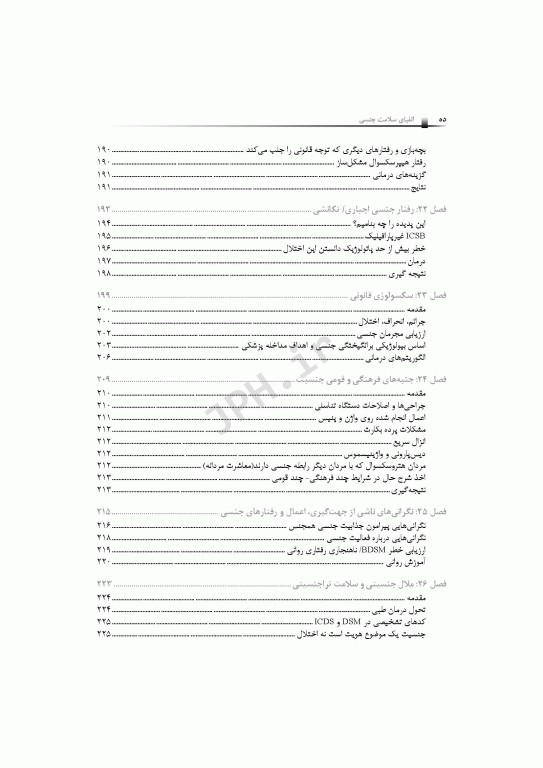 ۵۵ الفبای سلامت جنسی
بچه‌بازی و رفتارهای دیگری که توجه قانونی را جلب می‌کند ۱۹۰
رفتار هیپرسکسوال مشکل‌ساز ۱۹۰
گزینه‌های درمانی ۱۹۱
نتایج ۱۹۱
فصل ۲۲: رفتار جنسی اجباری/ تکانشی ۱۹۳
این پدیده را چه بنامیم؟ ۱۹۴
ICSB غیرپارافیلیک ۱۹۵
خطر بیش از حد پاتولوژیک دانستن این اختلال ۱۹۶
درمان ۱۹۷
نتیجه گیری ۱۹۸
فصل ۲۳: سکسولوژی قانونی ۱۹۹
مقدمه ۲۰۰
جرائم، انحراف، اختلال ۲۰۰
ارزیابی مجرمان جنسی ۲۰۲
اساس بیولوژیکی برانگیختگی جنسی و اهداف مداخله پزشکی ۲۰۳
الگوریتم‌های درمانی ۲۰۶
فصل ۲۴: جنبه‌های فرهنگی و قومی جنسیت ۲۰۹
مقدمه ۲۱۰
جراحی‌ها و اصلاحات دستگاه تناسلی ۲۱۰
اعمال انجام شده روی واژن و پنیس ۲۱۱
مشکلات پرده بکارت ۲۱۲
انزال سریع ۲۱۲
دیس‌پارونی و واژینیسموس ۲۱۲
مردان هتروسکسوال که با مردان دیگر رابطه جنسی دارند(معاشرت مردانه) ۲۱۲
اخذ شرح حال در شرایط چند فرهنگی- چند قومی ۲۱۳
نتیجه‌گیری ۲۱۳
فصل ۲۵: نگرانی‌های ناشی از جهت‌گیری، اعمال و رفتارهای جنسی ۲۱۵
نگرانی‌هایی پیرامون جذابیت جنسی همجنس ۲۱۶
نگرانی‌هایی درباره فعالیت جنسی ۲۱۸
ارزیابی خطر BDSM/ ناهنجاری رفتاری روانی ۲۱۹
آموزش روانی ۲۲۰
فصل ۲۶: ملال جنسیتی و سلامت تراجنسیتی ۲۲۳
مقدمه ۲۲۴
تحول درمان طبی ۲۲۴
کدهای تشخیصی در DSM و ICDS ۲۲۵
جنسیت یک موضوع هویت است نه اختلال ۲۲۵
JPH.ir